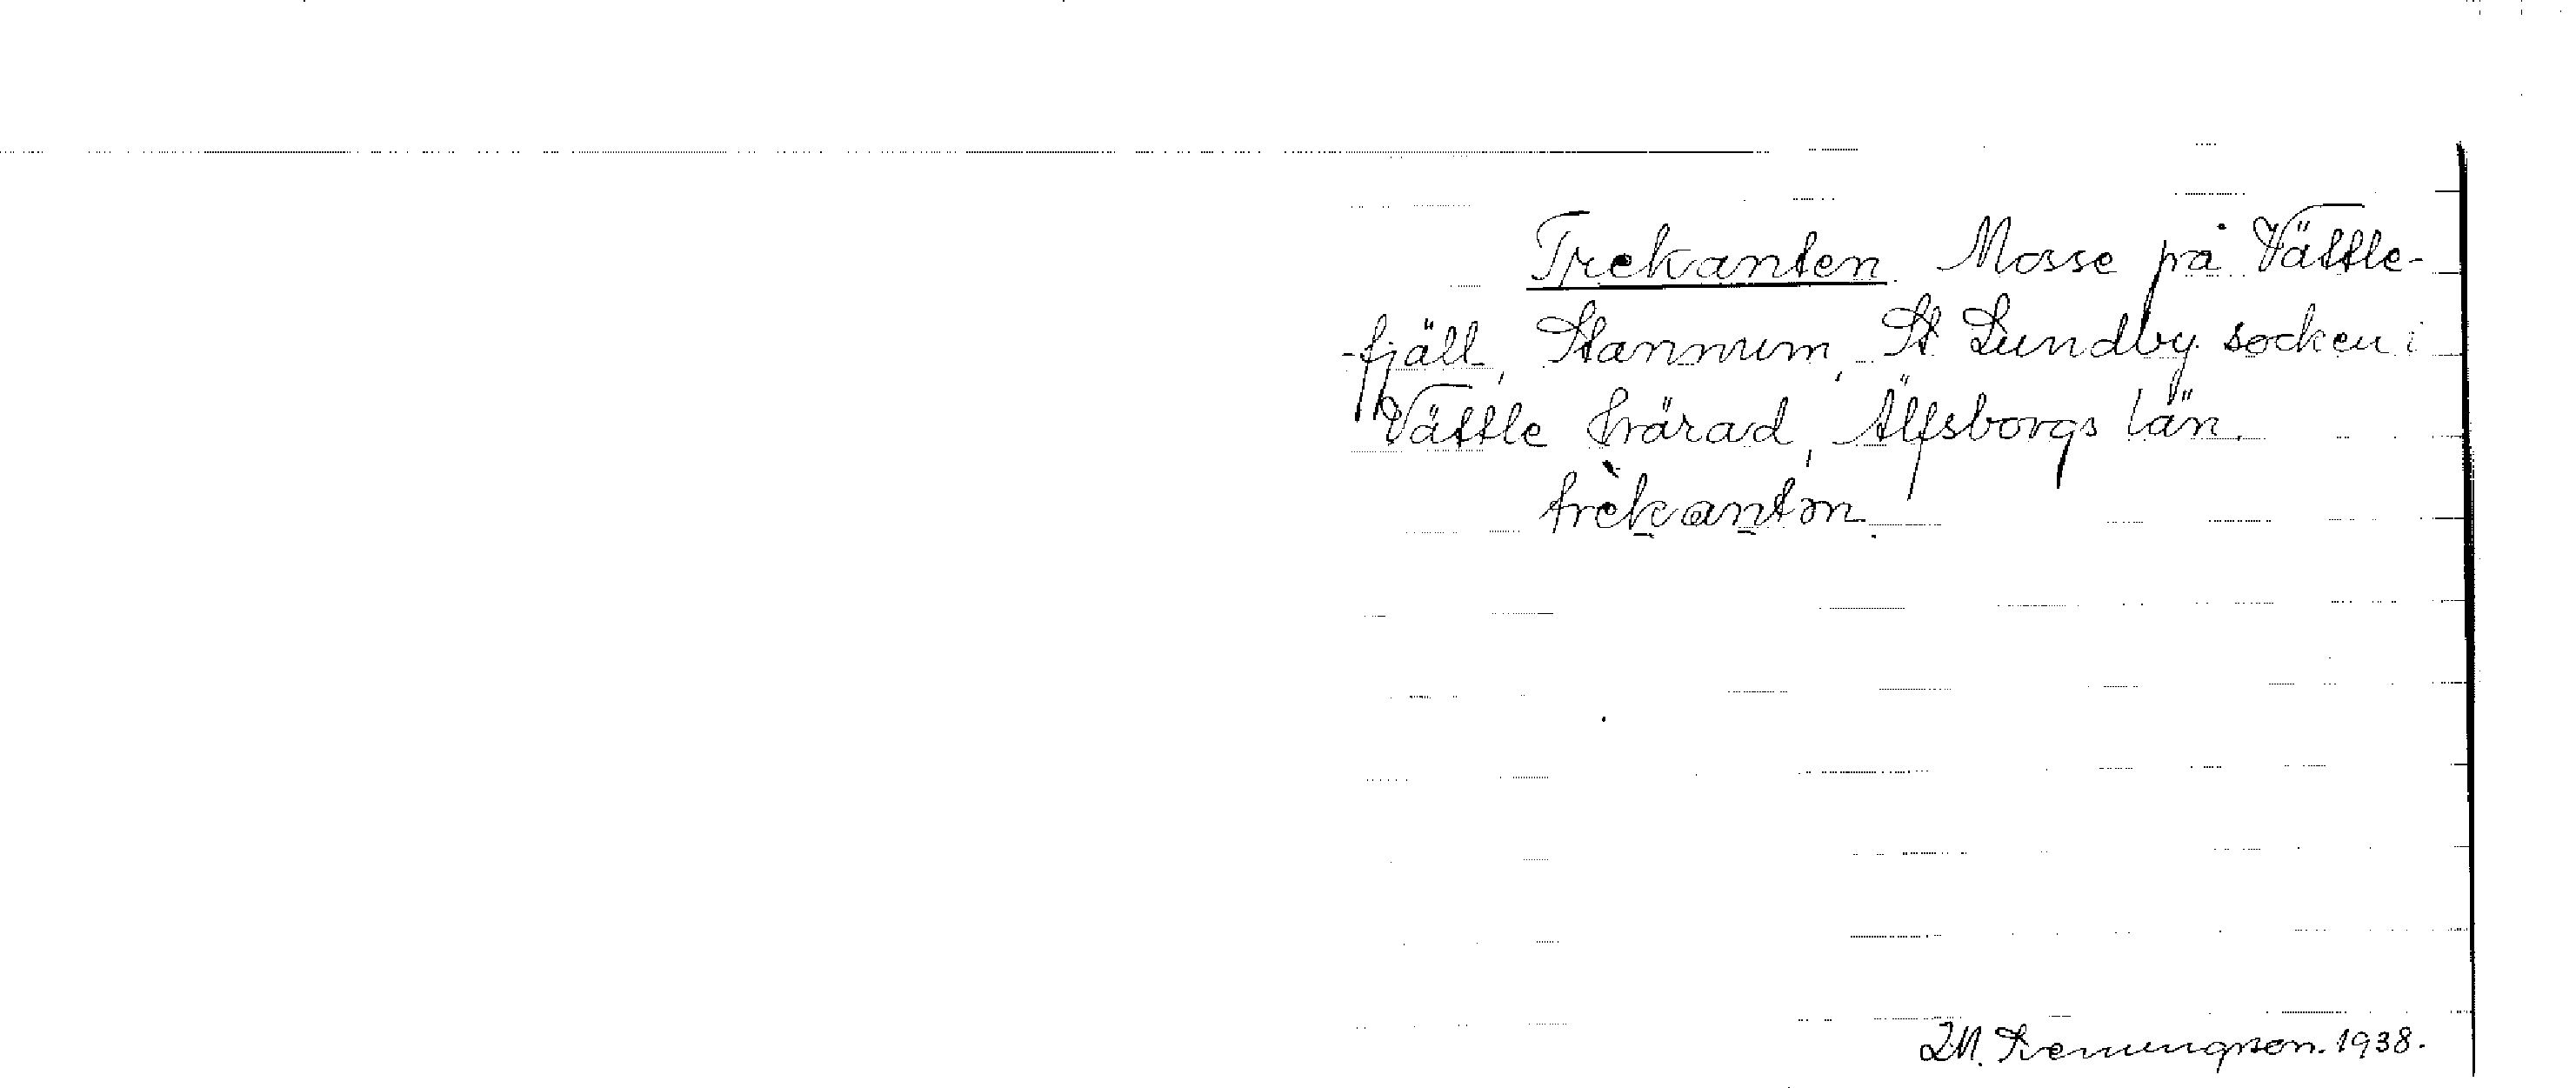 Trekanten. Mosse på Vättle-
-fjäll, Stannum, St Lundby socken i
Vättle härad, Älfsborgs län.
trèkantən.
1938.